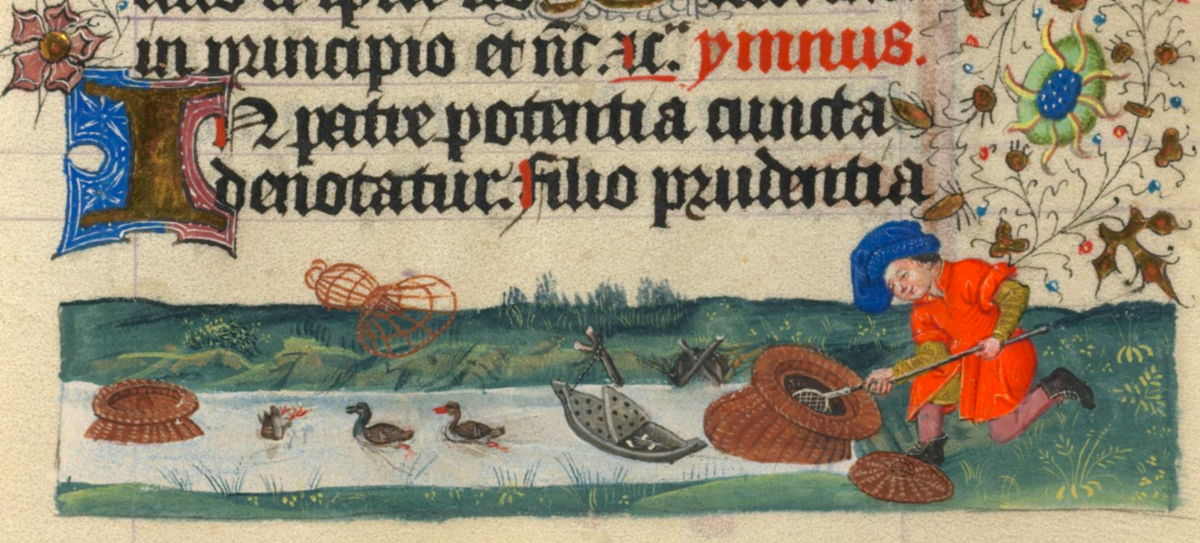 in principio et n̄c. ac. ymnus.
IN patre potentia cuncta
denotatur. filio prudentia